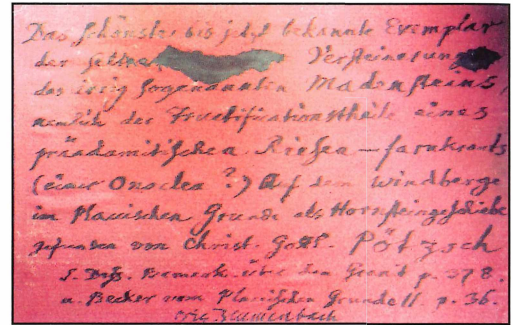 Das schönste, bis jetzt bekannte Exemplar
der selten Versteinerung
des irrig sogenannten Madensteins,
nemlich der Fructificationstheile eines
präadamitischen Riesen-farnkrauts
(einer Onoclea ?) Auf dem Windberge
im Plauischen Grunde als Hornsteingeschiebe
gefunden von Christ. Gottl. Pötzsch
s. Deß. Bemerk. über den Granit p. 378.
u. Becker vom Plauischen Grunde II. p. 36.
Blumenbach